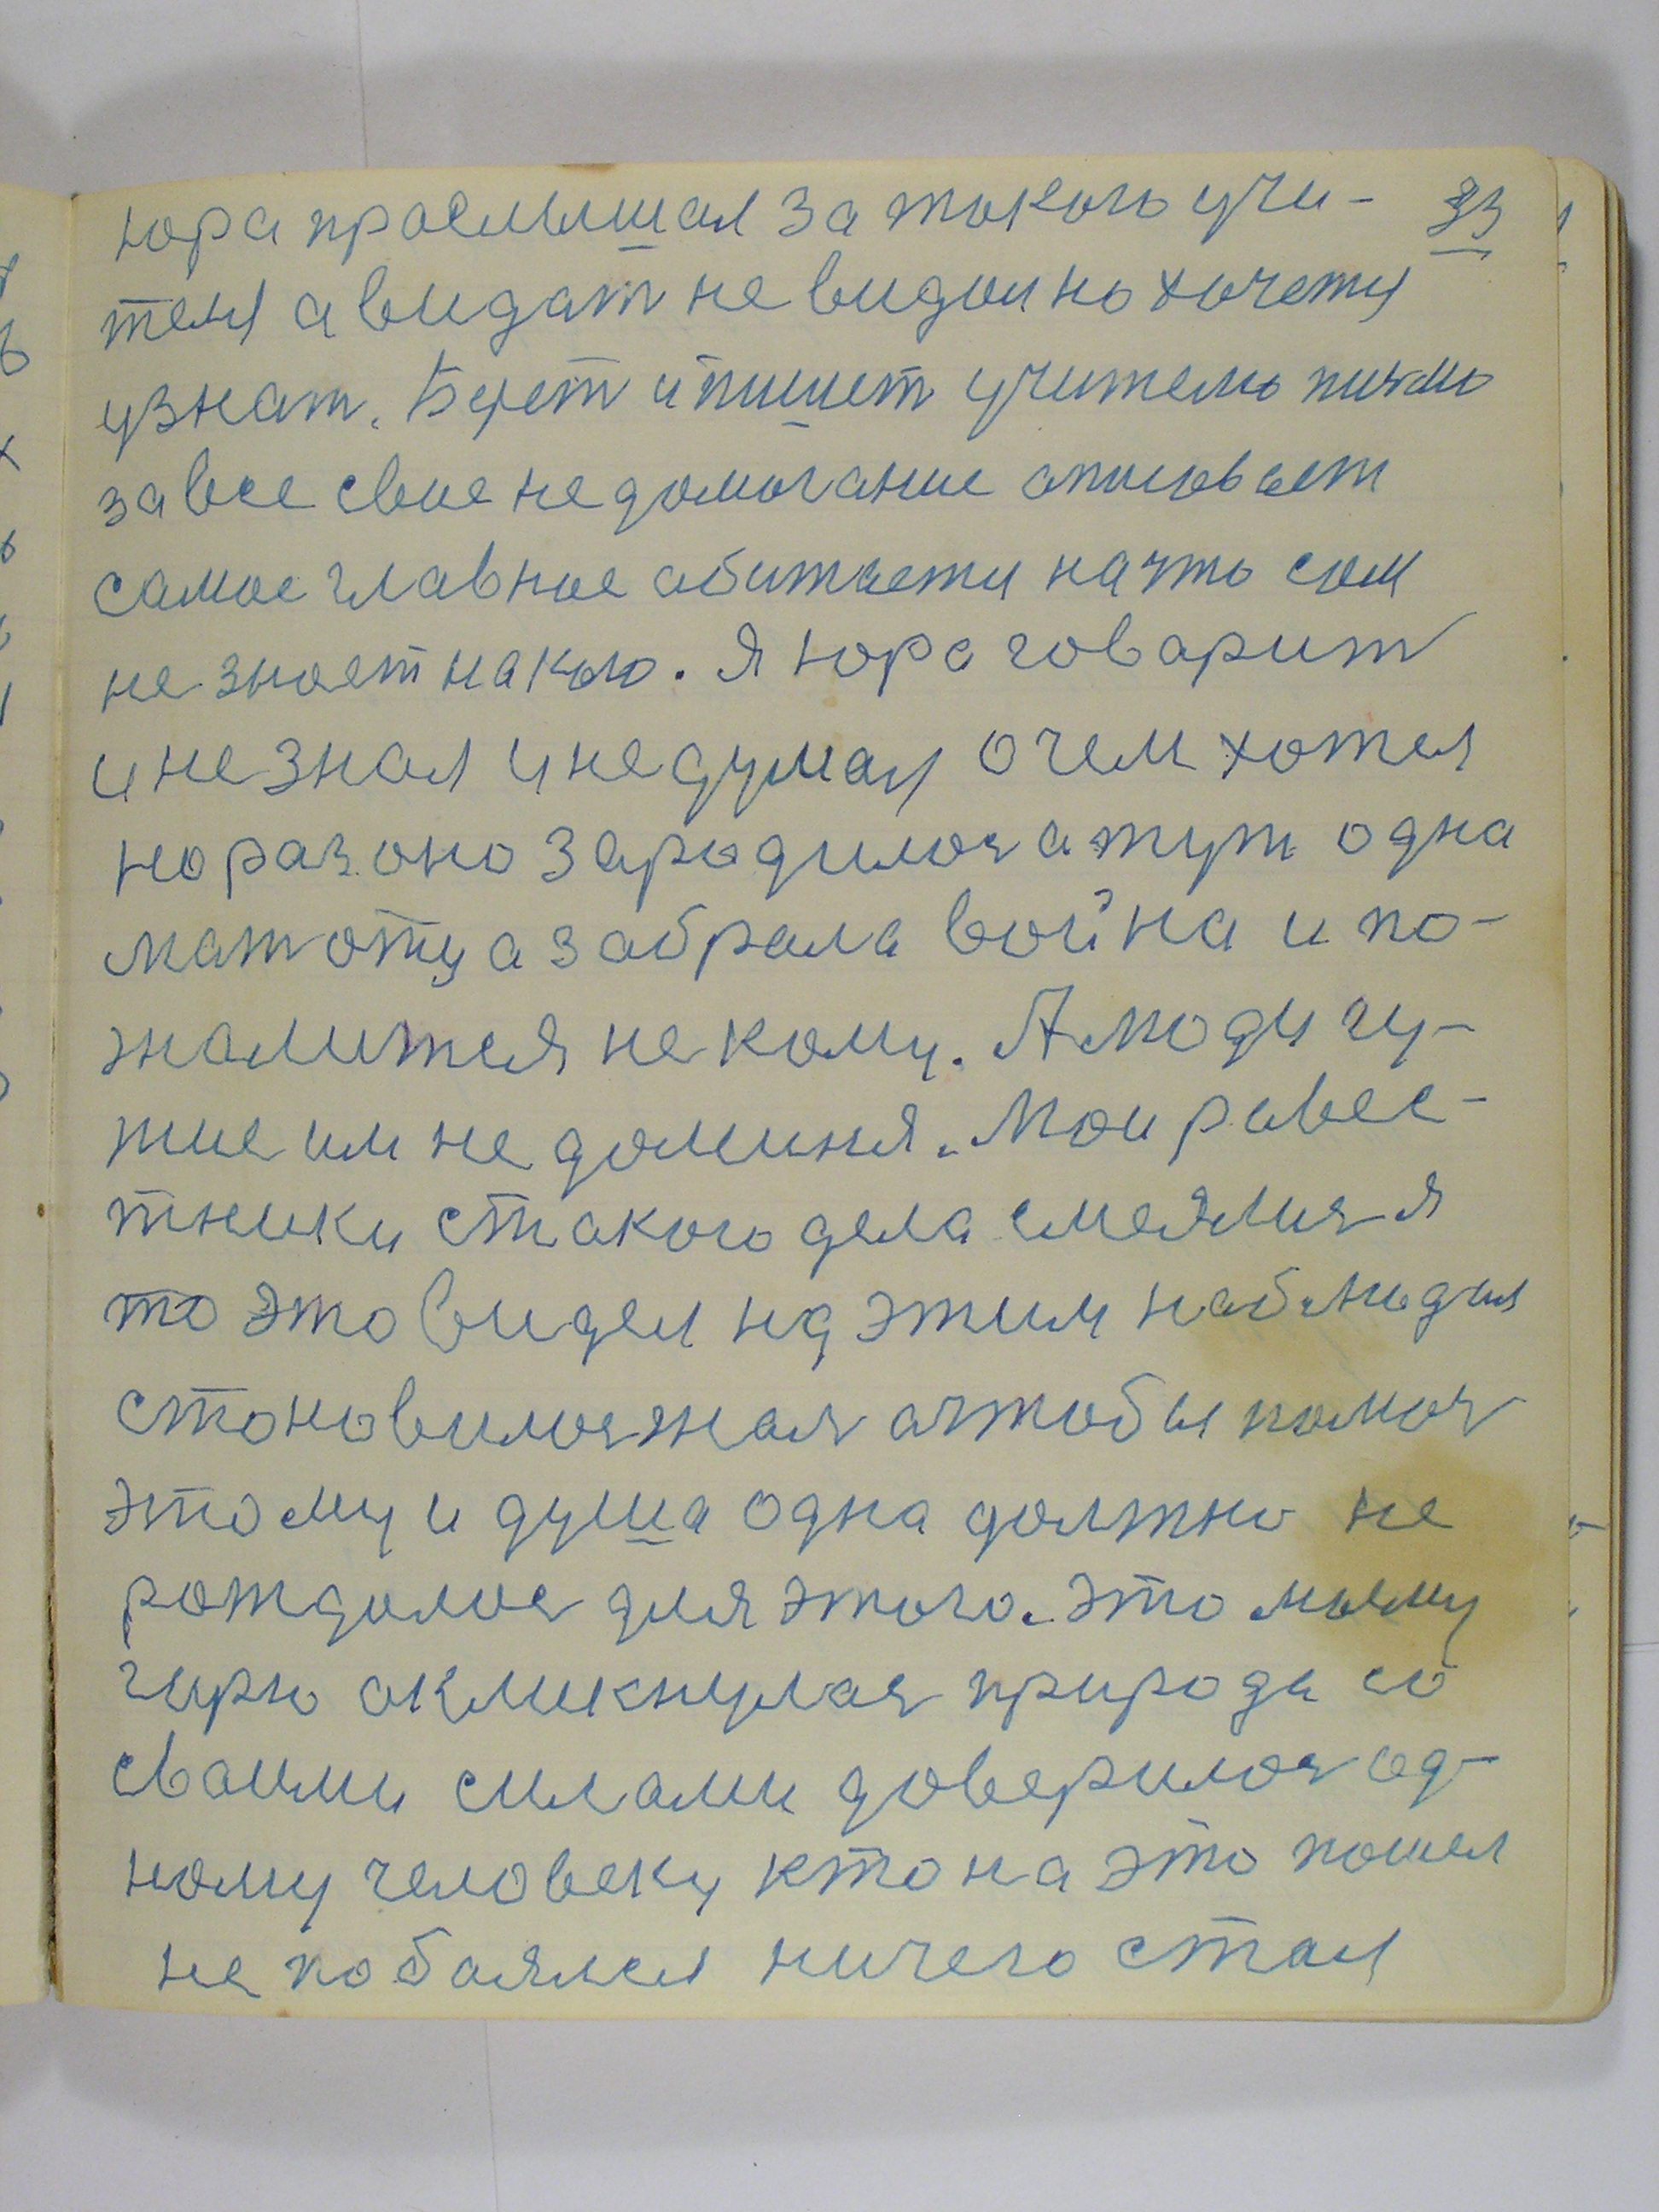 юра праслышал за токого учи- 33
теля а видат не видал но хочетц
узнат. Берет и пишет учителю писмо
за все свое недомогание описовает
самое главное обитается на что сам
не знает на кого. Я юра говарит
и не знал и не думал о чем хотел
но раз оно зародилось а тут одна
мат отца забрала война и по-
жалится не кому. А люди чу-
жие им не домення. Мои равес-
тники с такого дела смеялися я
то это видел над этим наблюдал
становилось жаль а чтобы помоч
этому и душа одна должно не
рождалос для этого. Это моему
гирю окликнулас природа со
своими силами доверилос од-
ному человеку кто на это пошел
не побоялся ничего стал